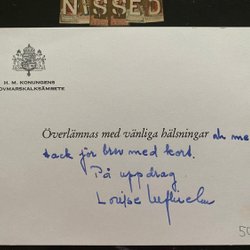 NISSED
H. M. KONUNGENS
OVMARSKALKSÄMBETE
Överlämnas med vänliga hälsningar och med
tack för brev med kort.
På uppdrag
Louise